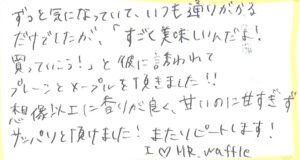 ずっと気になっていて、いつも通りがかる
だけでしたが、「すごく美味しいんだよ！
買っていこう！」と彼に誘われて
プレーンとメープルを頂きました!!
想像以上に香りが良く、甘いのに甘すぎず
サッパリと頂けました！またリピートします！
I ♡ MR. waffle